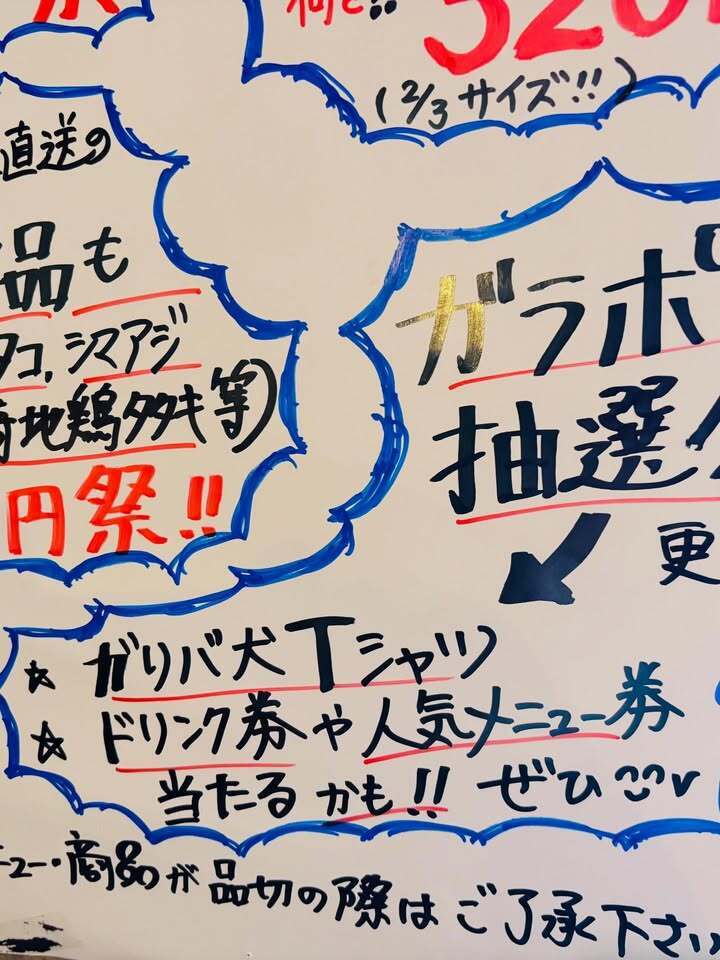 何と!!
320
(2/3サイズ!!)
直送の
品も
タコ、シマアジ
地鶏タタキ等)
円祭!!
ガラポ
抽選
更
☆ ガリバ犬Tシャツ
☆ ドリンク券や人気メニュー券
当たるかも!! ぜひ
ニュー・商品が品切の際はご了承下さい